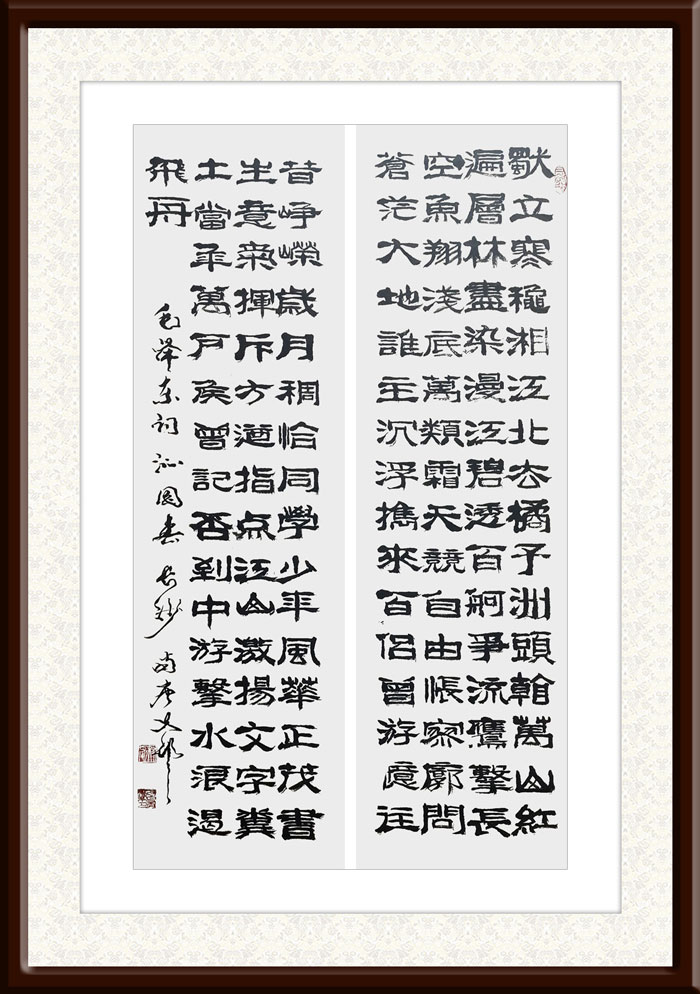 獨立寒穐湘江北去橘子洲頭看萬山紅
遍層林盡染漫江碧透百舸爭流鷹擊長
空魚翔淺底萬類霜天競自由悵寥廓問
蒼茫大地誰主沉浮攜來百侣曾游憶往
昔崢嶸歲月稠恰同學少年風華正茂書
生意氣揮斥方遒指点江山激揚文字糞
土當年萬戶侯曾記否到中游擊水浪遏
飛舟
毛泽东词沁园春长沙